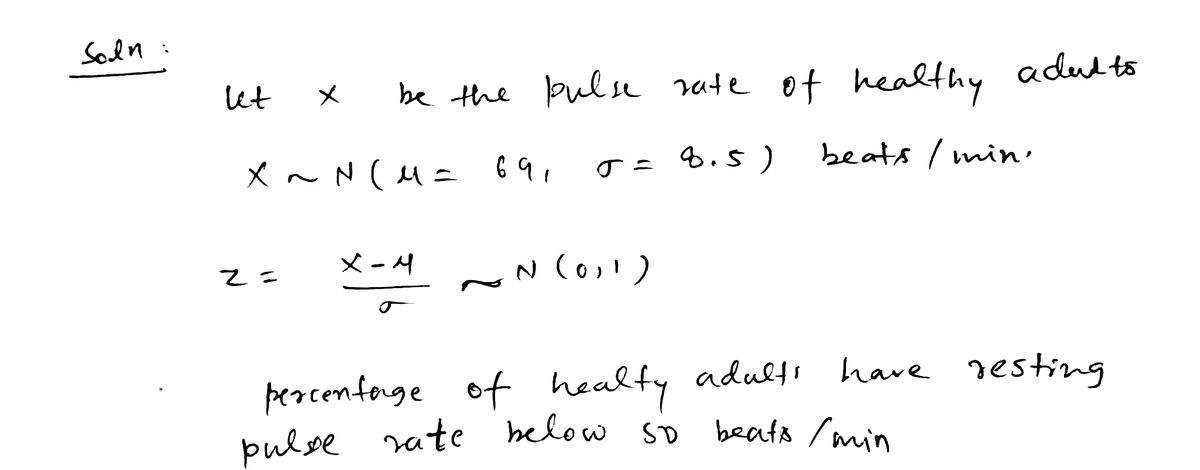 Soln :
let X be the pulse rate of healthy adults
X ~ N ( μ = 69, σ = 8.5 ) beats / min.
Z = (X - μ) / σ ~ N (0, 1)
percentage of healty adults have resting
pulse rate below 50 beats /min